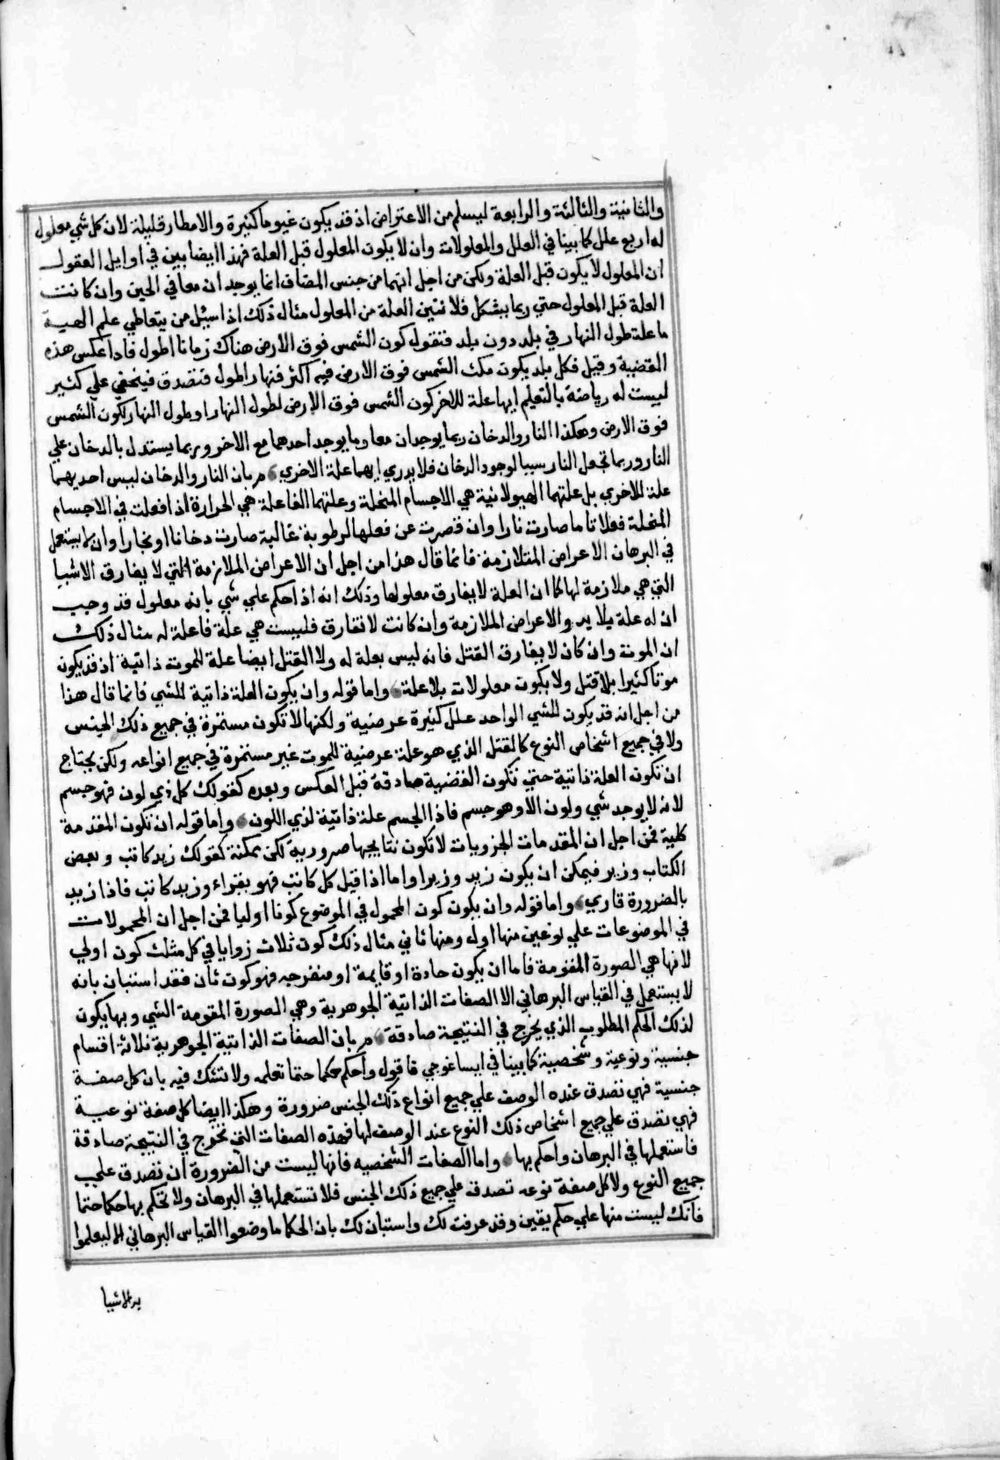 والثانية والثالثة والرابعة ليسلم من الاعتراض اذ قد يكون غيوما كثيرة والامطار قليلة لان كل شي معلول
له اربع علل كما بينا في العلل والمعلولات وان لا يكون المعلول قبل العلة فهذا ايضا بين في اوايل العقول
ان المعلول لا يكون قبل العلة ولكن من اجل انهما من جنس المضاف انما يوجدان معا في الحين وان كانت
العلة قبل المعلول حتي ربما يشكل فلا تتبين العلة من المعلول مثال ذلك اذا سيل من يتعاطي علم الهيية
ما علة طول النهار في بلد دون بلد فتقول كون الشمس فوق الارض هناك زمانا اطول فاذا عكس هذه
القضية وقيل فكل بلد يكون مكث الشمس فوق الارض فيه اكثر فنهاره اطول فتصدق فيخفي علي كثير
ليست له رياضة بالتعليم ايها علة للاخر كون الشمس فوق الارض لطول النهار او طول النهار لكون الشمس
فوق الارض وهكذا النار والدخان ربما يوجدان معا وما يوجد احدهما مع الاخر وربما يستدل بالدخان علي
النار وربما تجعل النار سببا لوجود الدخان فلا يدري ايهما علة الاخري مر بان النار والدخان ليس احديهما
علة للاخري بل علتهما الهيولانية هي الاجسام المتحلة وعلتهما الفاعلة هي الحرارة اذا فعلت في الاجسام
المتحلة فعلا تاما صارت نارا وان قصرت عن فعلها لرطوبة غالبة صارت دخانا او بخارا وان لا يستعمل
في البرهان الاعراض المتلازمة فانما قال هذا من اجل ان الاعراض الملازمة التي لا يفارق الاشيا
التي هي ملازمة لها كما ان العلة لا يفارق معلولها وذلك انه اذا حكم علي شي بانه معلول فقد وجب
ان له علة بلا بد والاعراض الملازمة وان كانت لا تفارق فليست هي علة فاعلة له مثال ذلك
ان الموت وان كان لا يفارق القتل فانه ليس بعلة له ولا القتل ايضا علة للموت ذاتية اذ قد يكون
موتا كثيرا بلا قتل ولا يكون معلولات بلا علة واما قوله وان يكون العلة ذاتية للشي فانما قال هذا
من اجل انه قد يكون للشي الواحد علل كثيرة عرضية ولكنها لا تكون مستمرة في جميع ذلك الجنس
ولا في جميع اشخاص النوع كالقتل الذي هو علة عرضية للموت غير مستمرة في جميع انواعه ولكن يحتاج
ان تكون العلة ذاتية حتي تكون القضية صادقة قبل العكس وبعده كقولك كل ذي لون فهو جسم
لانه لا يوجد شي ولون الا وهو جسم فاذا الجسم علة ذاتية لذي اللون واما قوله ان تكون المقدمة
كلية فمن اجل ان المقدمات الجزويات لا تكون نتايجها ضرورية لكن ممكنة كقولك زيد كاتب وبعض
الكتاب وزير فيمكن ان يكون زيد وزيرا واما اذا قيل كل كاتب فهو يقراء وزيد كاتب فاذا زيد
بالضرورة قاري واما قوله وان يكون كون المحمول في الموضوع كونا اوليا فمن اجل ان المحمولات
في الموضوعات علي نوعين منها اول ومنها ثاني مثال ذلك كون ثلاث زوايا في كل مثلث كون اولي
لانها هي الصورة المقومة فاما ان يكون حادة او قايمة او منفرجه فهو كون ثان فقد استبان بانه
لا يستعمل في القياس البرهاني الا الصفات الذاتية الجوهرية وهي الصورة المقومة الشي وبها يكون
لذلك الحكم المطلوب الذي يخرج في النتيجة صادقة مر بان الصفات الذاتية الجوهرية ثلاثة اقسام
جنسية ونوعية وشخصية كما بينا في ايساغوجي فاقول واحكم حكما حتما تعلمه ولا تشك فيه بان كل صفة
جنسية فهي تصدق عنده الوصف علي جميع انواع ذلك الجنس ضرورة وهكذا ايضا كل صفة نوعية
فهي تصدق علي جميع اشخاص ذلك النوع عند الوصف لها فهذه الصفات التي تخرج في النتيجة صادقة
فاستعملها في البرهان واحكم بها واما الصفات الشخصيه فانها ليست من الضرورة ان تصدق علي
جميع النوع ولا كل صفة نوعه تصدق علي جميع ذلك الجنس فلا تستعملها في البرهان ولا تحكم بها حكما حتما
فانك ليست منها علي حكم يقين وقد عرفت لك واستبان لك بان الحكما ما وضعوا القياس البرهاني الا ليعلموا
به الاشيا